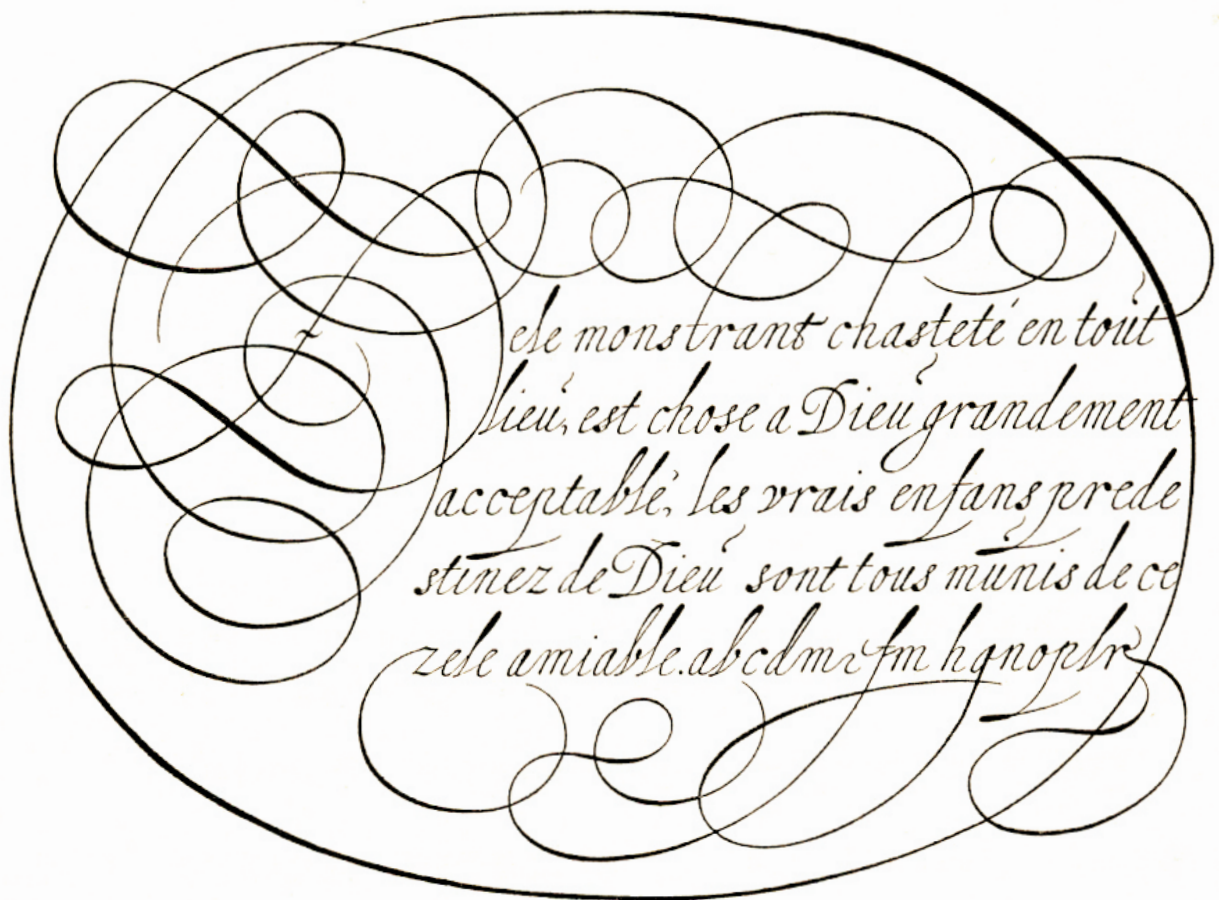 Zele monstrant chasteté en tout
lieu, est chose a Dieu grandement
acceptable, les vrais enfans prede
stinez de Dieu sont tous munis de ce
zele amiable. abcdm